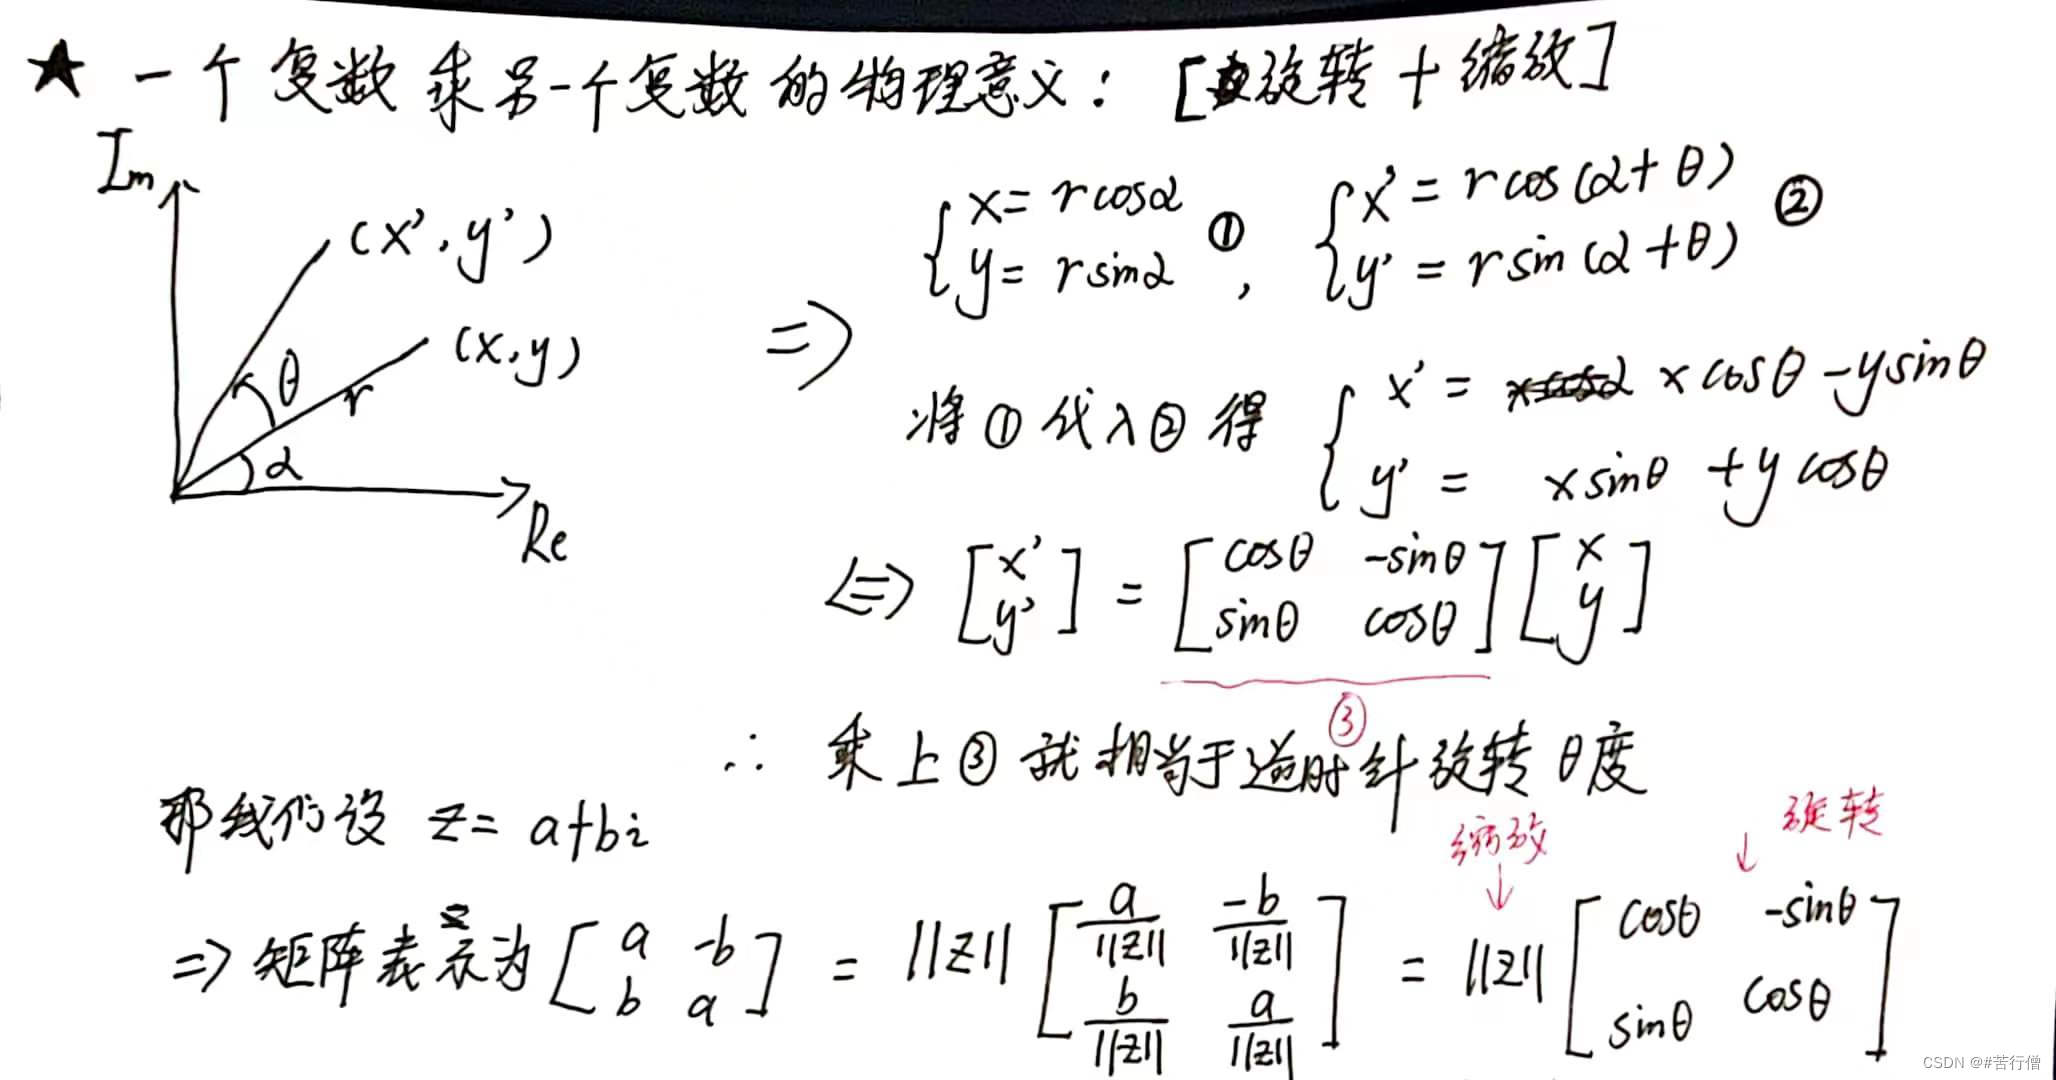 ★ 一个复数乘另一个复数的物理意义：[旋转+缩放]
Im
(x', y')
(x, y)
θ
r
α
Re
=> { x = rcosα
y = rsinα ① , { x' = rcos(α+θ)
y' = rsin(α+θ) ②
将①代入②得 { x' = xcosθ - ysinθ
y' = xsinθ + ycosθ
<=> [x' y'] = [cosθ -sinθ
sinθ cosθ] [x y]
③
∴ 乘上③就相当于逆时针旋转θ度
那我们设 z = a+bi
缩放 ↓
旋转 ↓
=> 矩阵表示为 [a -b
b a] = ||z|| [a/||z|| -b/||z||
b/||z|| a/||z||] = ||z|| [cosθ -sinθ
sinθ cosθ]
CSDN @#苦行僧